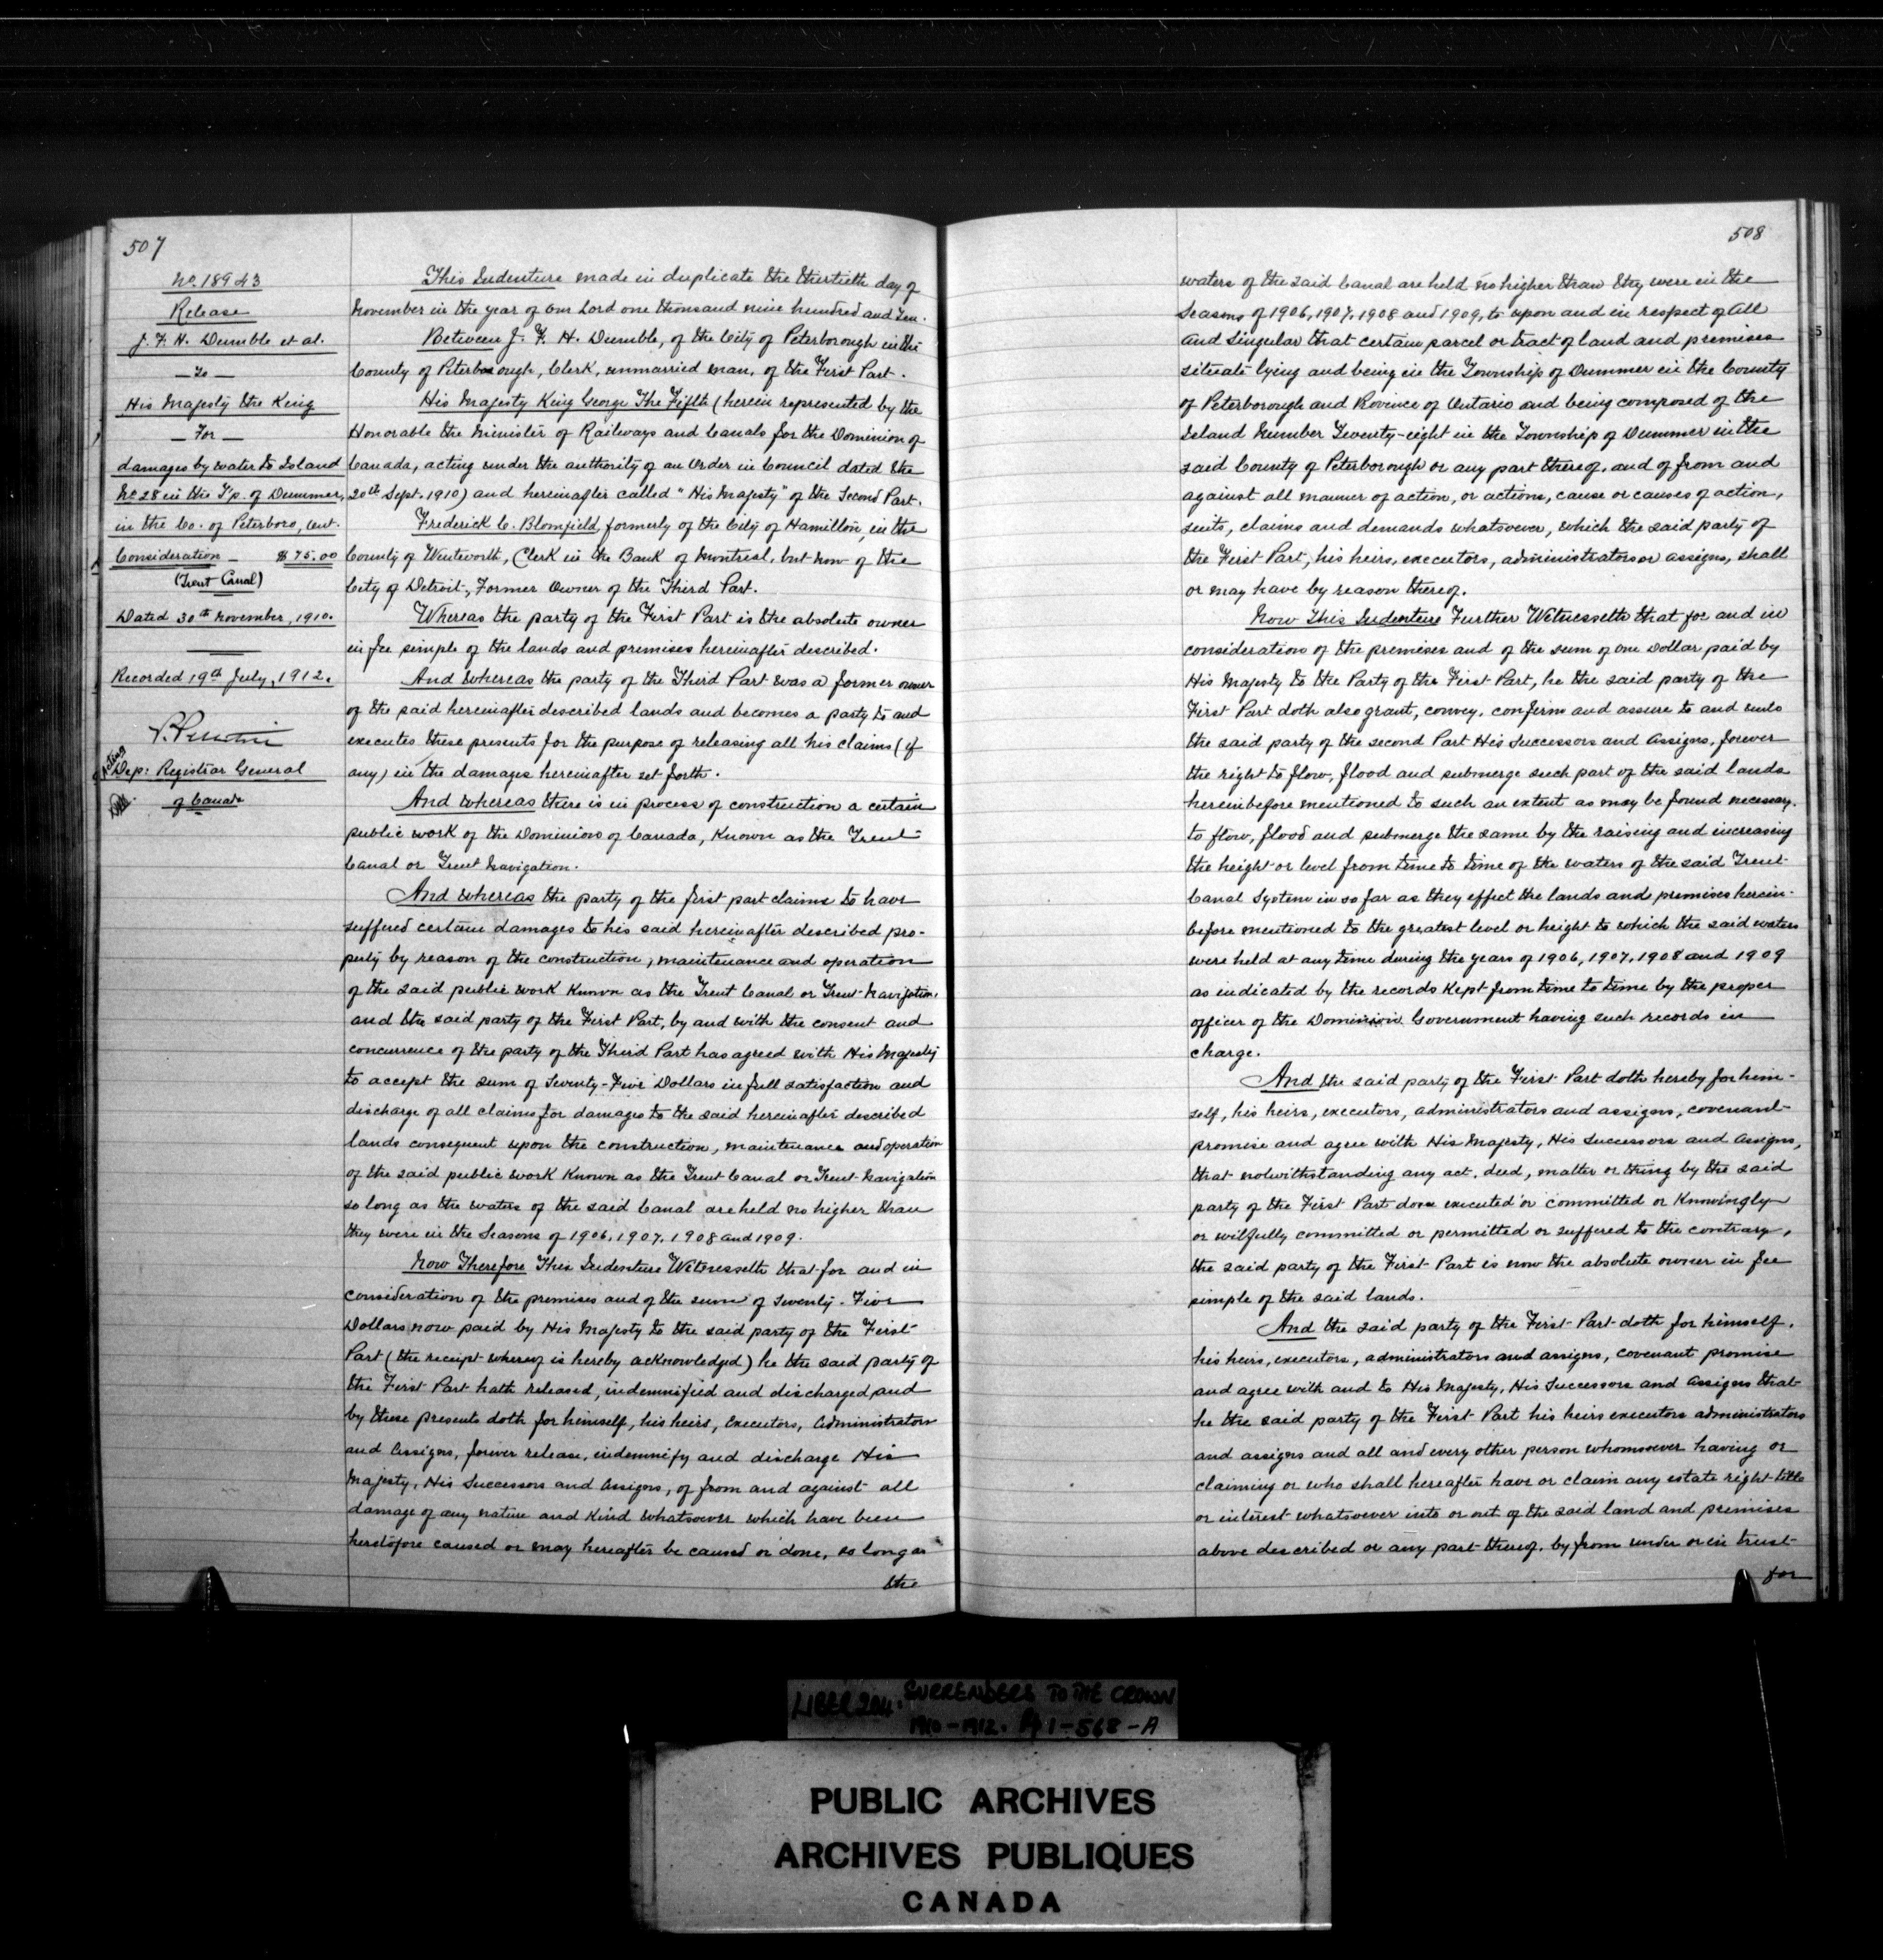 507
No. 18943
Release
J. F. H. Dumble et al.
— To —
His Majesty the King
— For —
damages by water to Island
No 28 in the T'p. of Dummer,
in the Co. of Peterboro, Ont.
Consideration — $75.00
(Trent Canal)
Dated 30th November, 1910.
Recorded 19th July, 1912.
Acting
Dep: Registrar General
of Canada
This Indenture made in duplicate the thirtieth day of
November in the year of our Lord one thousand nine hundred and Ten.
Between J. F. H. Dumble, of the City of Peterborough in the
County of Peterborough, Clerk, unmarried man, of the First Part.
His Majesty King George The Fifth (herein represented by the
Honorable the Minister of Railways and Canals for the Dominion of
Canada, acting under the authority of an Order in Council dated the
20th Sept. 1910) and hereinafter called "His Majesty" of the Second Part.
Frederick C. Blomfield, formerly of the City of Hamilton, in the
County of Wentworth, Clerk in the Bank of Montreal, but now of the
City of Detroit, Former Owner of the Third Part.
Whereas the party of the First Part is the absolute owner
in fee simple of the lands and premises hereinafter described.
And Whereas the party of the Third Part was a former owner
of the said hereinafter described lands and becomes a party to and
executes these presents for the purpose of releasing all his claims (if
any) in the damages hereinafter set forth.
And Whereas there is in process of construction a certain
public work of the Dominion of Canada, Known as the Trent
Canal or Trent Navigation.
And Whereas the party of the first part claims to have
suffered certain damages to his said hereinafter described pro-
perty by reason of the construction, maintenance and operation
of the said public work Known as the Trent Canal or Trent Navigation,
and the said party of the First Part, by and with the consent and
concurrence of the party of the Third Part has agreed with His Majesty
to accept the sum of Seventy-Five Dollars in full satisfaction and
discharge of all claims for damages to the said hereinafter described
lands consequent upon the construction, maintenance and operation
of the said public work Known as the Trent Canal or Trent Navigation
so long as the waters of the said Canal are held no higher than
they were in the Seasons of 1906, 1907, 1908 and 1909.
Now Therefore This Indenture Witnesseth that for and in
consideration of the premises and of the sum of Seventy-Five
Dollars now paid by His Majesty to the said party of the First
Part (the receipt whereof is hereby acknowledged) he the said party of
the First Part hath released, indemnified and discharged, and
by these presents doth for himself, his heirs, Executors, Administrators
and Assigns, forever release, indemnify and discharge His
Majesty, His Successors and Assigns, of from and against all
damage of any nature and Kind whatsoever which have been
heretofore caused or may hereafter be caused or done, so long as
the
508
waters of the said Canal are held no higher than they were in the
Seasons of 1906, 1907, 1908 and 1909, to upon and in respect of All
and Singular that certain parcel or tract of land and premises
situate lying and being in the Township of Dummer in the County
of Peterborough and Province of Ontario and being composed of the
Island Number Twenty-eight in the Township of Dummer in the
said County of Peterborough or any part thereof. and of from and
against all manner of action, or actions, cause or causes of action,
suits, claims and demands whatsoever, which the said party of
the First Part, his heirs, executors, administrators or assigns, shall
or may have by reason thereof.
Now This Indenture Further Witnesseth that for and in
consideration of the premises and of the sum of One Dollar paid by
His Majesty to the Party of the First Part, he the said party of the
First Part doth also grant, convey, confirm and assure to and unto
the said party of the second Part His Successors and Assigns, forever
the right to flow, flood and submerge such part of the said lands
hereinbefore mentioned to such an extent as may be found necessary.
to flow, flood and submerge the same by the raising and increasing
the height or level from time to time of the waters of the said Trent
Canal System in so far as they effect the lands and premises herein-
before mentioned to the greatest level or height to which the said waters
were held at any time during the years of 1906, 1907, 1908 and 1909
as indicated by the records Kept from time to time by the proper
officer of the Dominion Government having such records in
charge.
And the said party of the First Part doth hereby for him-
self, his heirs, executors, administrators and assigns, covenant
promise and agree with His Majesty, His Successors and Assigns,
that notwithstanding any act, deed, matter or thing by the said
party of the First Part done executed or committed or Knowingly
or wilfully committed or permitted or suffered to the contrary,
the said party of the First Part is now the absolute owner in fee
simple of the said lands.
And the said party of the First Part doth for himself,
his heirs, executors, administrators and assigns, covenant promise
and agree with and to His Majesty, His Successors and Assigns that
he the said party of the First Part his heirs executors administrators
and assigns and all and every other person whomsoever having or
claiming or who shall hereafter have or claim any estate right title
or interest whatsoever into or out of the said land and premises
above described or any part thereof. by from under or in trust
for
LIBER 204. SURRENDERS TO THE CROWN
1910-1912. pp 1-568-A
PUBLIC ARCHIVES
ARCHIVES PUBLIQUES
CANADA